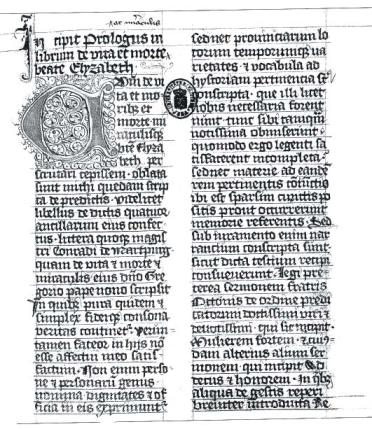 In cipit Prologus in
librum de vita et morte
beate Elyzabeth
Cum de vi
ta et mo
ribus et
morte mi
raculisqz
bte Elyza
beth per
scrutari cepissem · oblata
sunt michi quedam scrip
ta de predictis · videlicet
libellus de dictis quatuor
ancillarum eius confec
tus · littera quoqz magis
tri Conradi de
quam de vita & morte &
miraculis eius dño Gre
gorio pape nono scripsit
In quibz pura quidem &
simplex fideqz consona
veritas continet · verum
tamen fateor in hijs nõ
esse affectui meo satis
factum · Non enim perso
ne & personarũ genus
nomina dignitates & of
ficia in eis exprimunt
sed net prouinciarum lo
rorum temporumqz va
rietates · & vocabula ad
hystoriam pertinencia sũt
conscripta · que illi licet
nobis necessaria forent
tunc sibi tamqum
notissima obmiserunt ·
quomodo ergo legenti sa
tisfacerent incompleta ·
sed net materie ad eande
rem pertinentis
ibi est sparsim
sitis prout occurrerunt
memorie referentis · Sed
sub iuramento enim nar
rancium conscripta sunt
sicut dicta testium recipi
consueuerunt · Legi pre
terea sermonem fratris
Ottonis de ordine predi
catorum doctissimi viri &
deuotissimi · qui sic incipit ·
Mulierem fortem · & cuius
dam alterius alium ser
monem qui incipit Ad
decus & honorem · In qbz
aliqua de gestis reperi
breuiter introducta Re